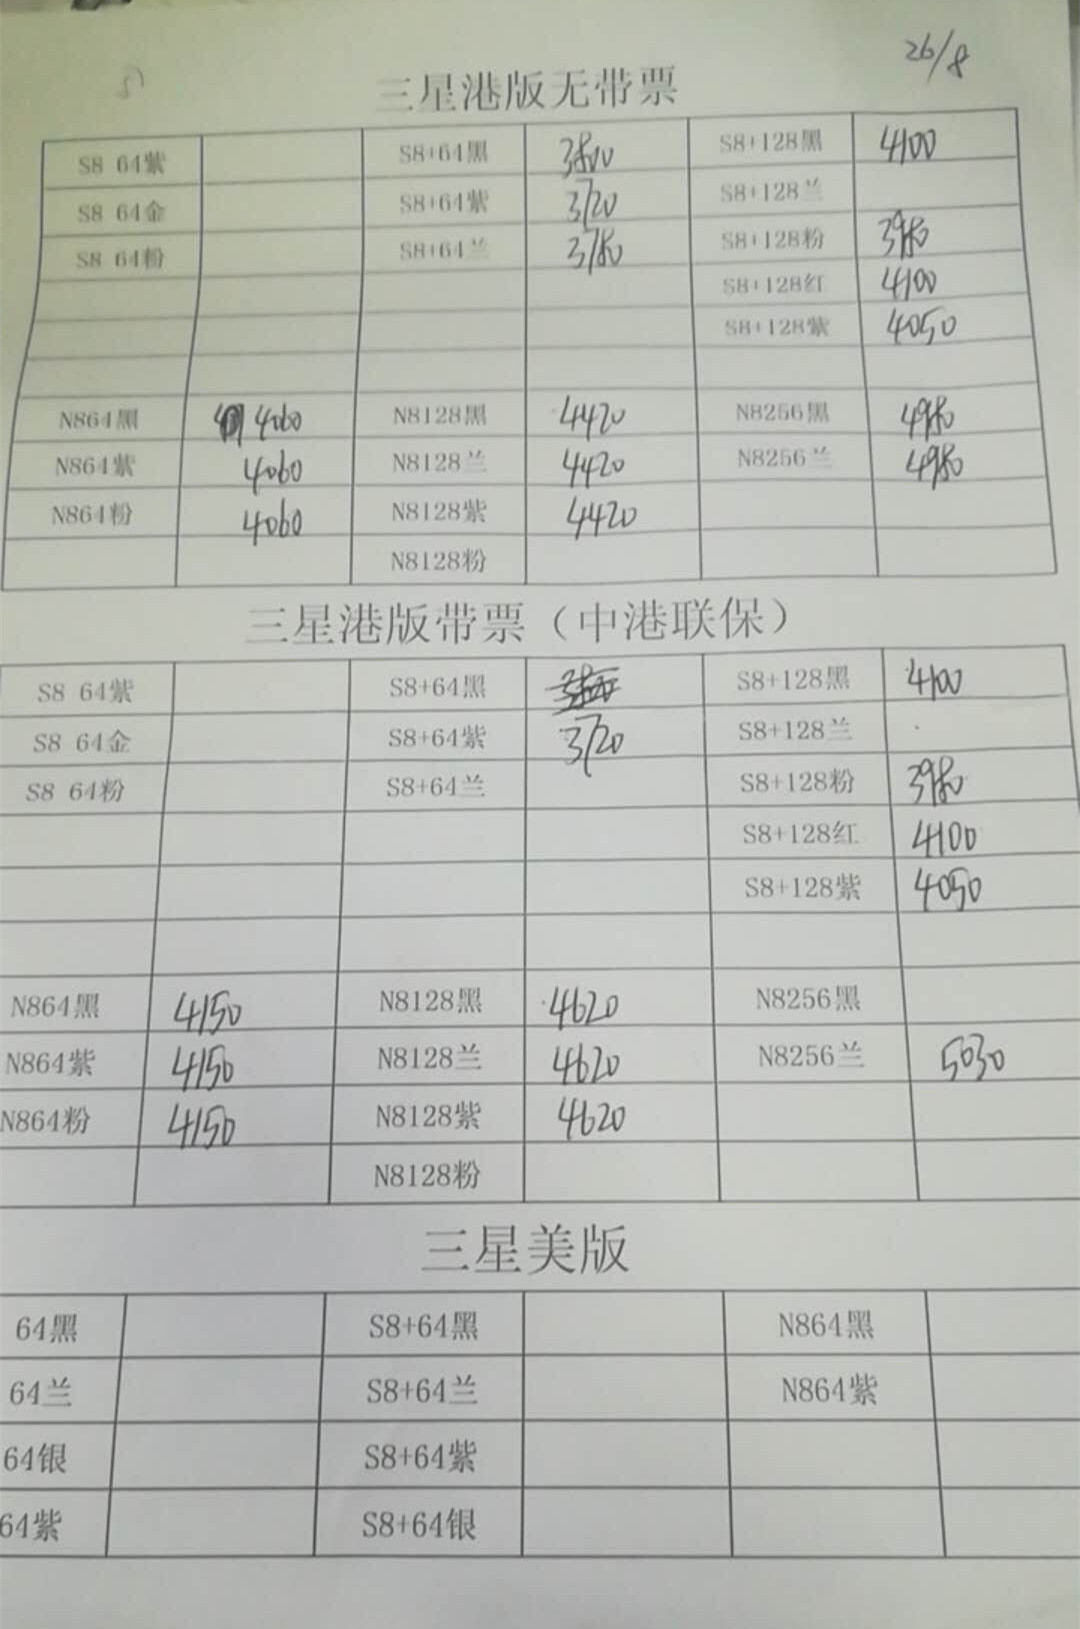 26/8
三星港版无带票
S8 64紫 S8+64黑 3800 S8+128黑 4100
S8 64金 S8+64紫 3720 S8+128兰
S8 64粉 S8+64兰 3780 S8+128粉 3980
S8+128红 4100
S8+128紫 4050
N864黑 4060 N8128黑 4420 N8256黑 4980
N864紫 4060 N8128兰 4420 N8256兰 4980
N864粉 4060 N8128紫 4420
N8128粉
三星港版带票（中港联保）
S8 64紫 S8+64黑 S8+128黑 4100
S8 64金 S8+64紫 3720 S8+128兰
S8 64粉 S8+64兰 S8+128粉 3980
S8+128红 4100
S8+128紫 4050
N864黑 4150 N8128黑 4620 N8256黑
N864紫 4150 N8128兰 4620 N8256兰 5030
N864粉 4150 N8128紫 4620
N8128粉
三星美版
64黑 S8+64黑 N864黑
64兰 S8+64兰 N864紫
64银 S8+64紫
64紫 S8+64银